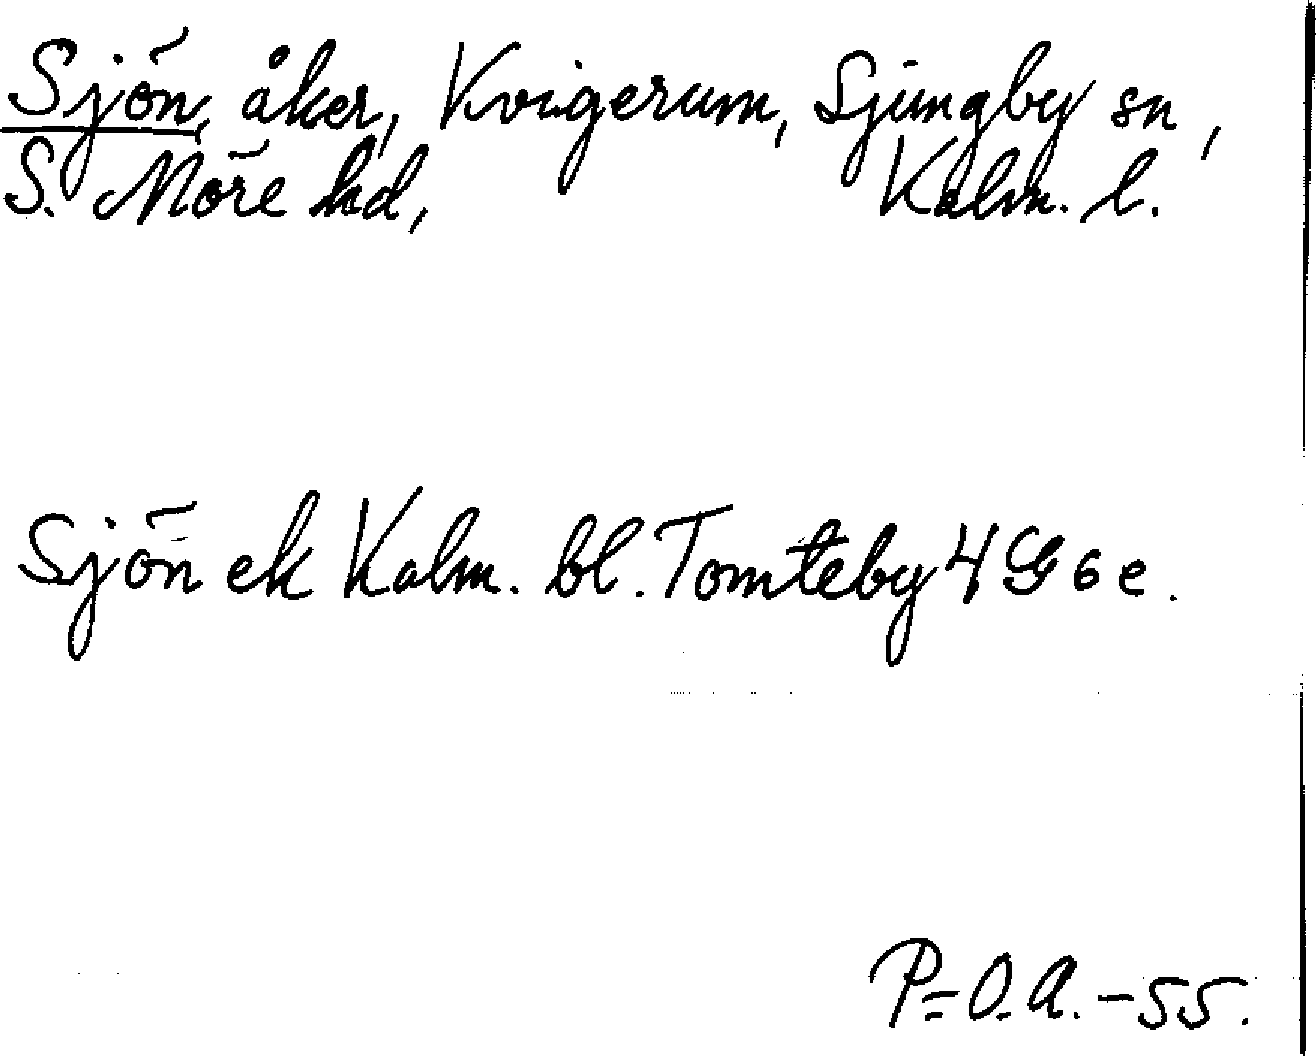 Sjön, åker, Kvigerum, Ljungby sn,
S. Möre hd, Kalm. l.
Sjön ek Kalm. bl. Tomteby 4 G 6 e.
P=O.A.-55.